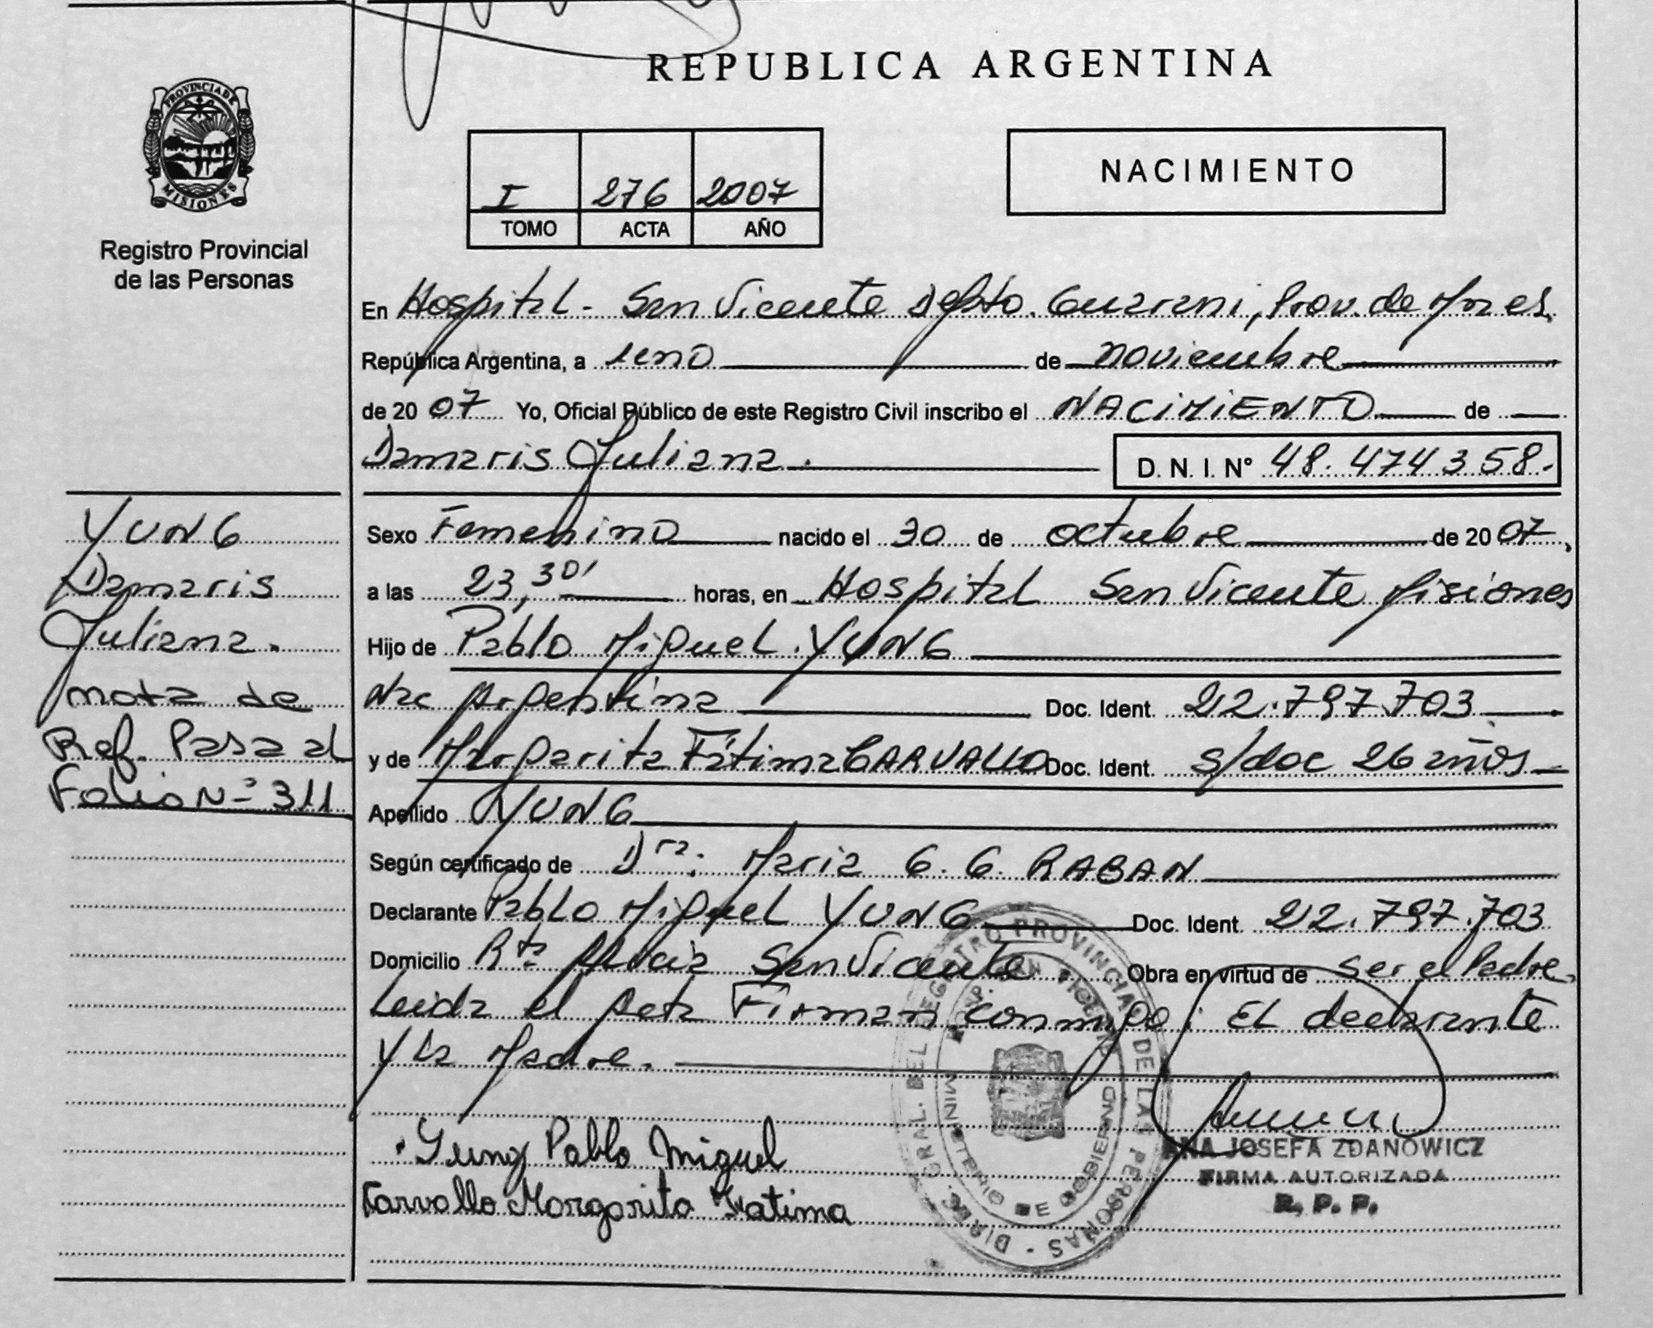 REPUBLICA ARGENTINA
PROVINCIA DE MISIONES
Registro Provincial
de las Personas
I 276 2007
TOMO ACTA AÑO
NACIMIENTO
En Hospital - San Vicente Depto. Guarani, Prov. de Mnes.
República Argentina, a uno de noviembre
de 2007 Yo, Oficial Público de este Registro Civil inscribo el NACIMIENTO de
Damaris Juliana. D. N. I. N° 48.474358.
YUNG
Damaris
Juliana.
nota de
Ref. Pasa al
Folio N° 311
Sexo Femenino nacido el 30 de octubre de 2007,
a las 23,30' horas, en Hospital San Vicente Misiones
Hijo de Pablo Miguel YUNG
Nac Argentina Doc. Ident. 22.797.703
y de Margarita Fátima CARVALLO Doc. Ident. s/doc 26 años
Apellido YUNG
Según certificado de Dra: Maria G. G. RABAN
Declarante Pablo Miguel YUNG Doc. Ident. 22.797.703
Domicilio San Vicente Obra en virtud de ser el Padre.
Leida el Acta Firman conmigo: EL declarante
Y La Madre.
Yung Pablo Miguel
Carvallo Margarita Fatima
DIR. GRAL. DEL REGISTRO PROVINCIAL DE LAS PERSONAS
MINISTERIO DE GOBIERNO
ANA JOSEFA ZDANOWICZ
FIRMA AUTORIZADA
R. P. P.